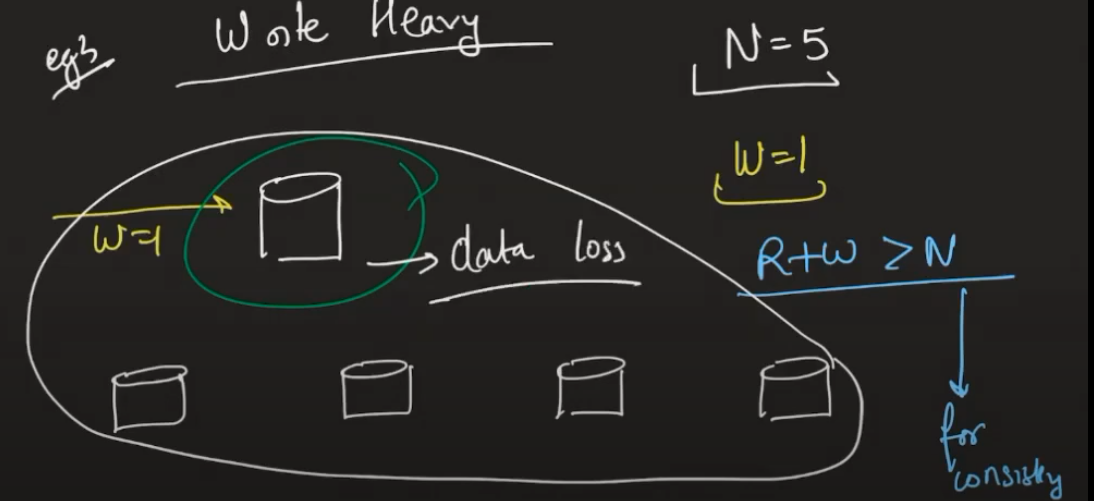 eg3
Write Heavy
N=5
W=1
W=1
→ data loss
R+W ≥ N
for
consisty